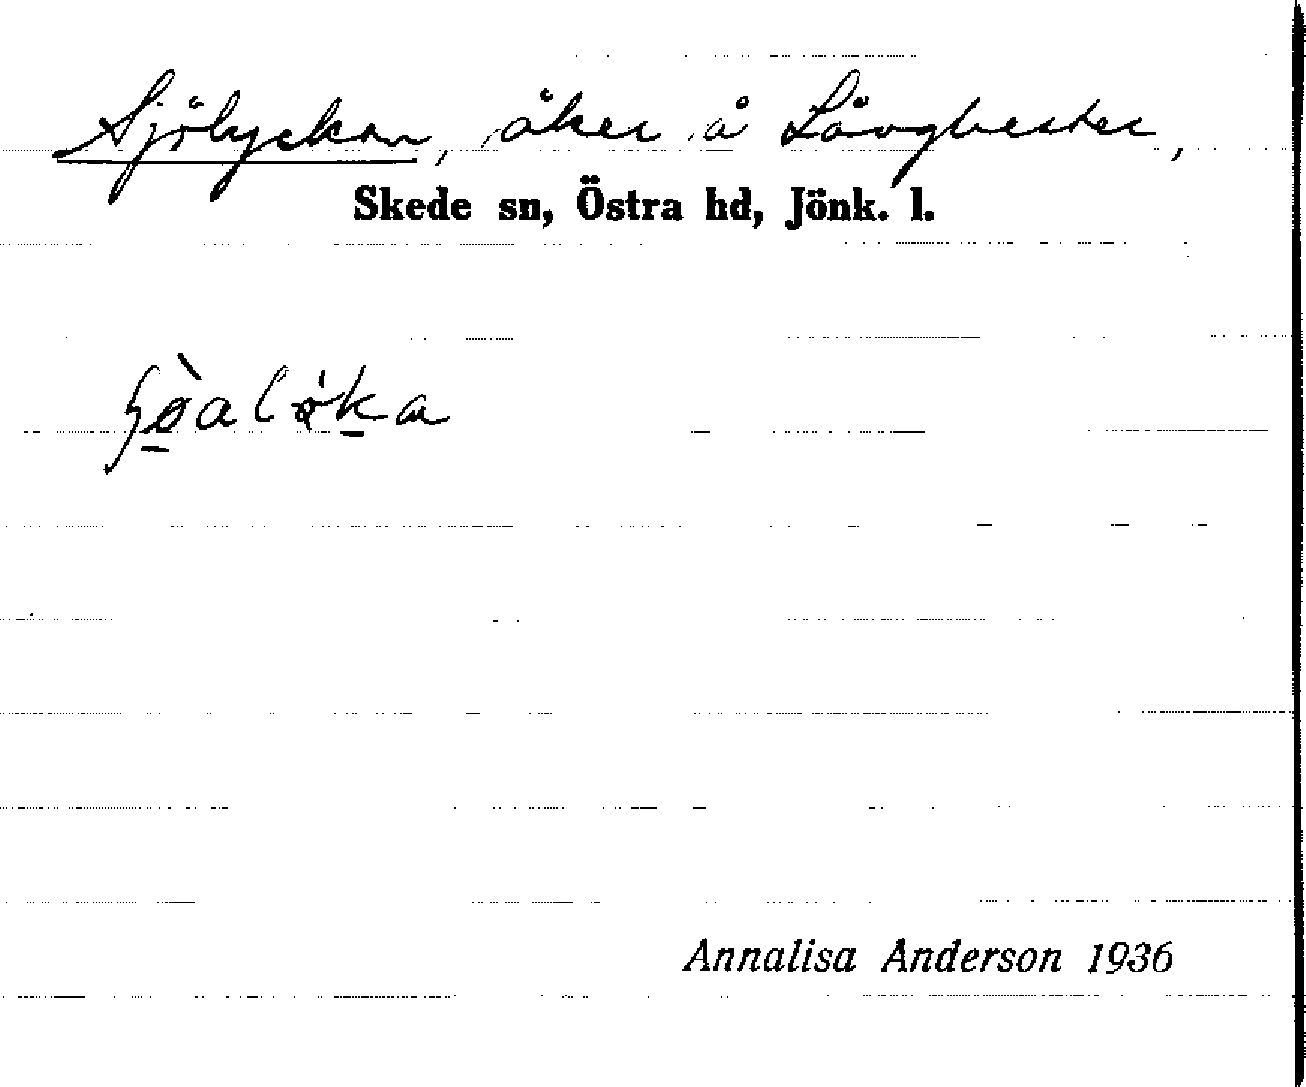 Sjölyckan, åker å Lövgbester,
Skede sn, Östra hd, Jönk. l.
Annalisa Anderson 1936